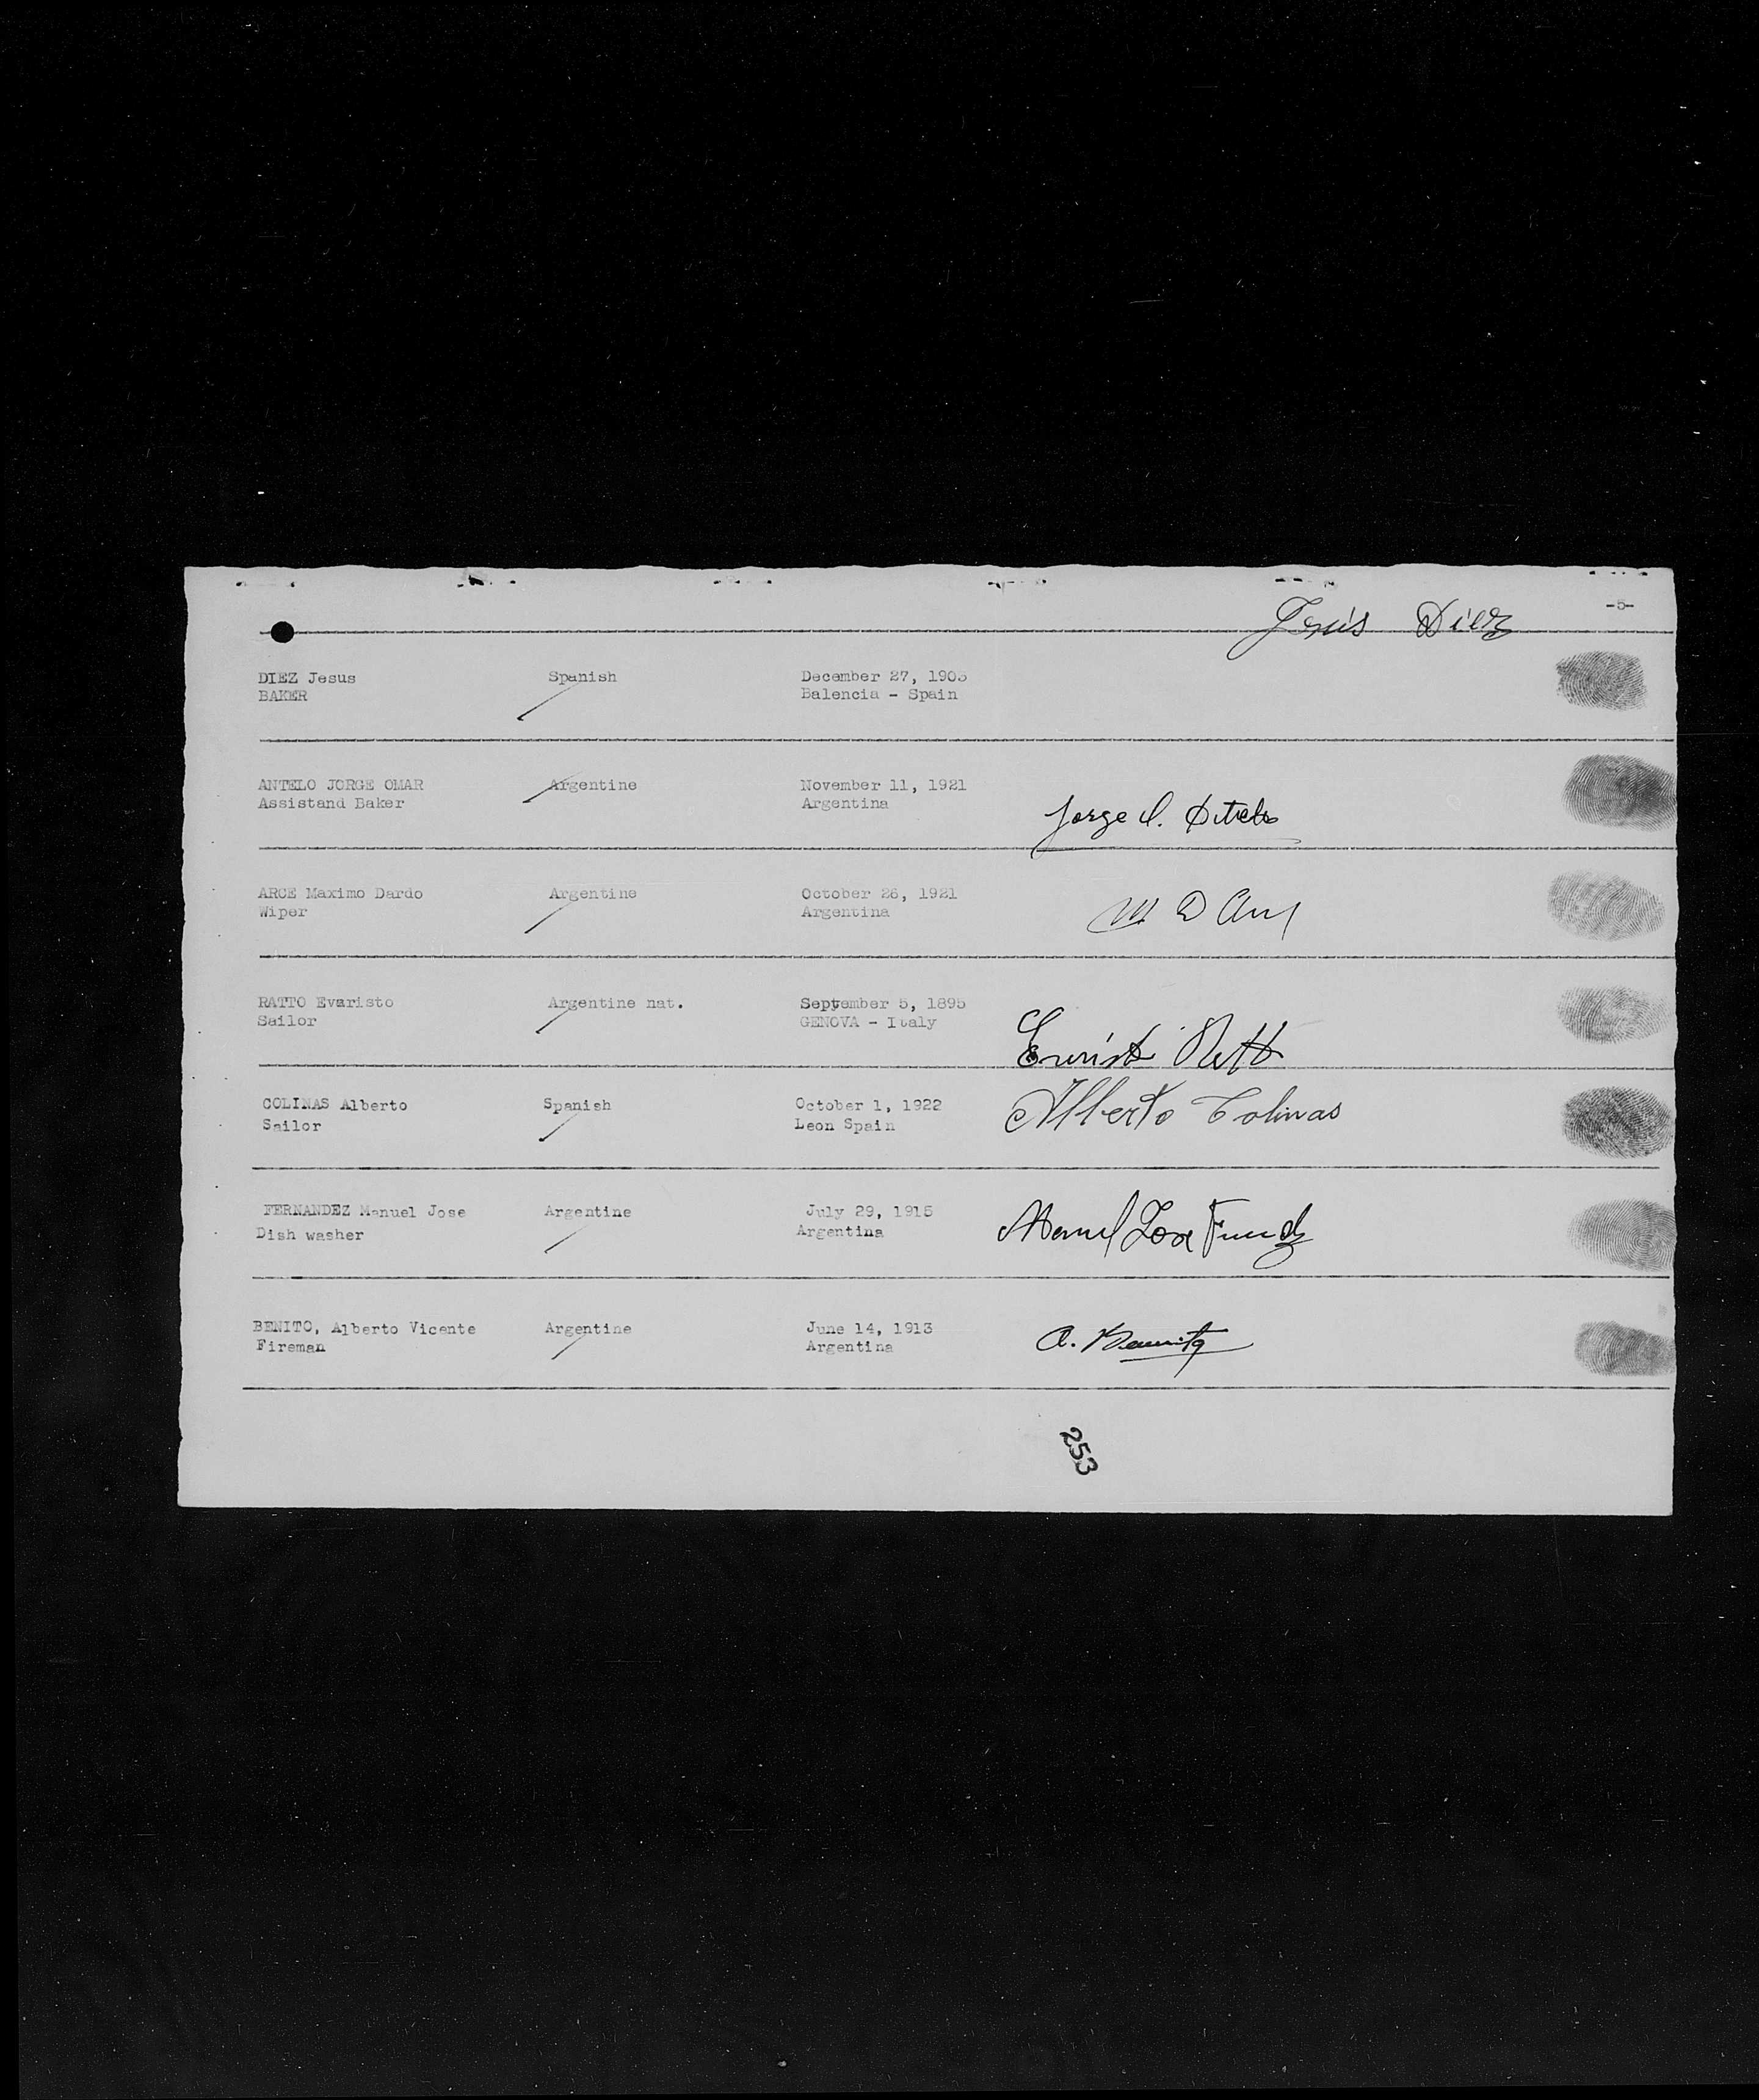 -5-
Jesús Diez
DIEZ Jesus Spanish December 27, 1903
BAKER Balencia - Spain
ANTELO JORGE OMAR Argentine November 11, 1921
Assistand Baker Argentina
Jorge O. Antelo
ARCE Maximo Dardo Argentine October 26, 1921
Wiper Argentina
M D Arce
RATTO Evaristo Argentine nat. September 5, 1895
Sailor GENOVA - Italy
Evaristo Ratto
COLINAS Alberto Spanish October 1, 1922 Alberto Colinas
Sailor Leon Spain
FERNANDEZ Manuel Jose Argentine July 29, 1915
Dish washer Argentina
Manuel Jose Fernandez
BENITO, Alberto Vicente Argentine June 14, 1913
Fireman Argentina
A. Benito
253